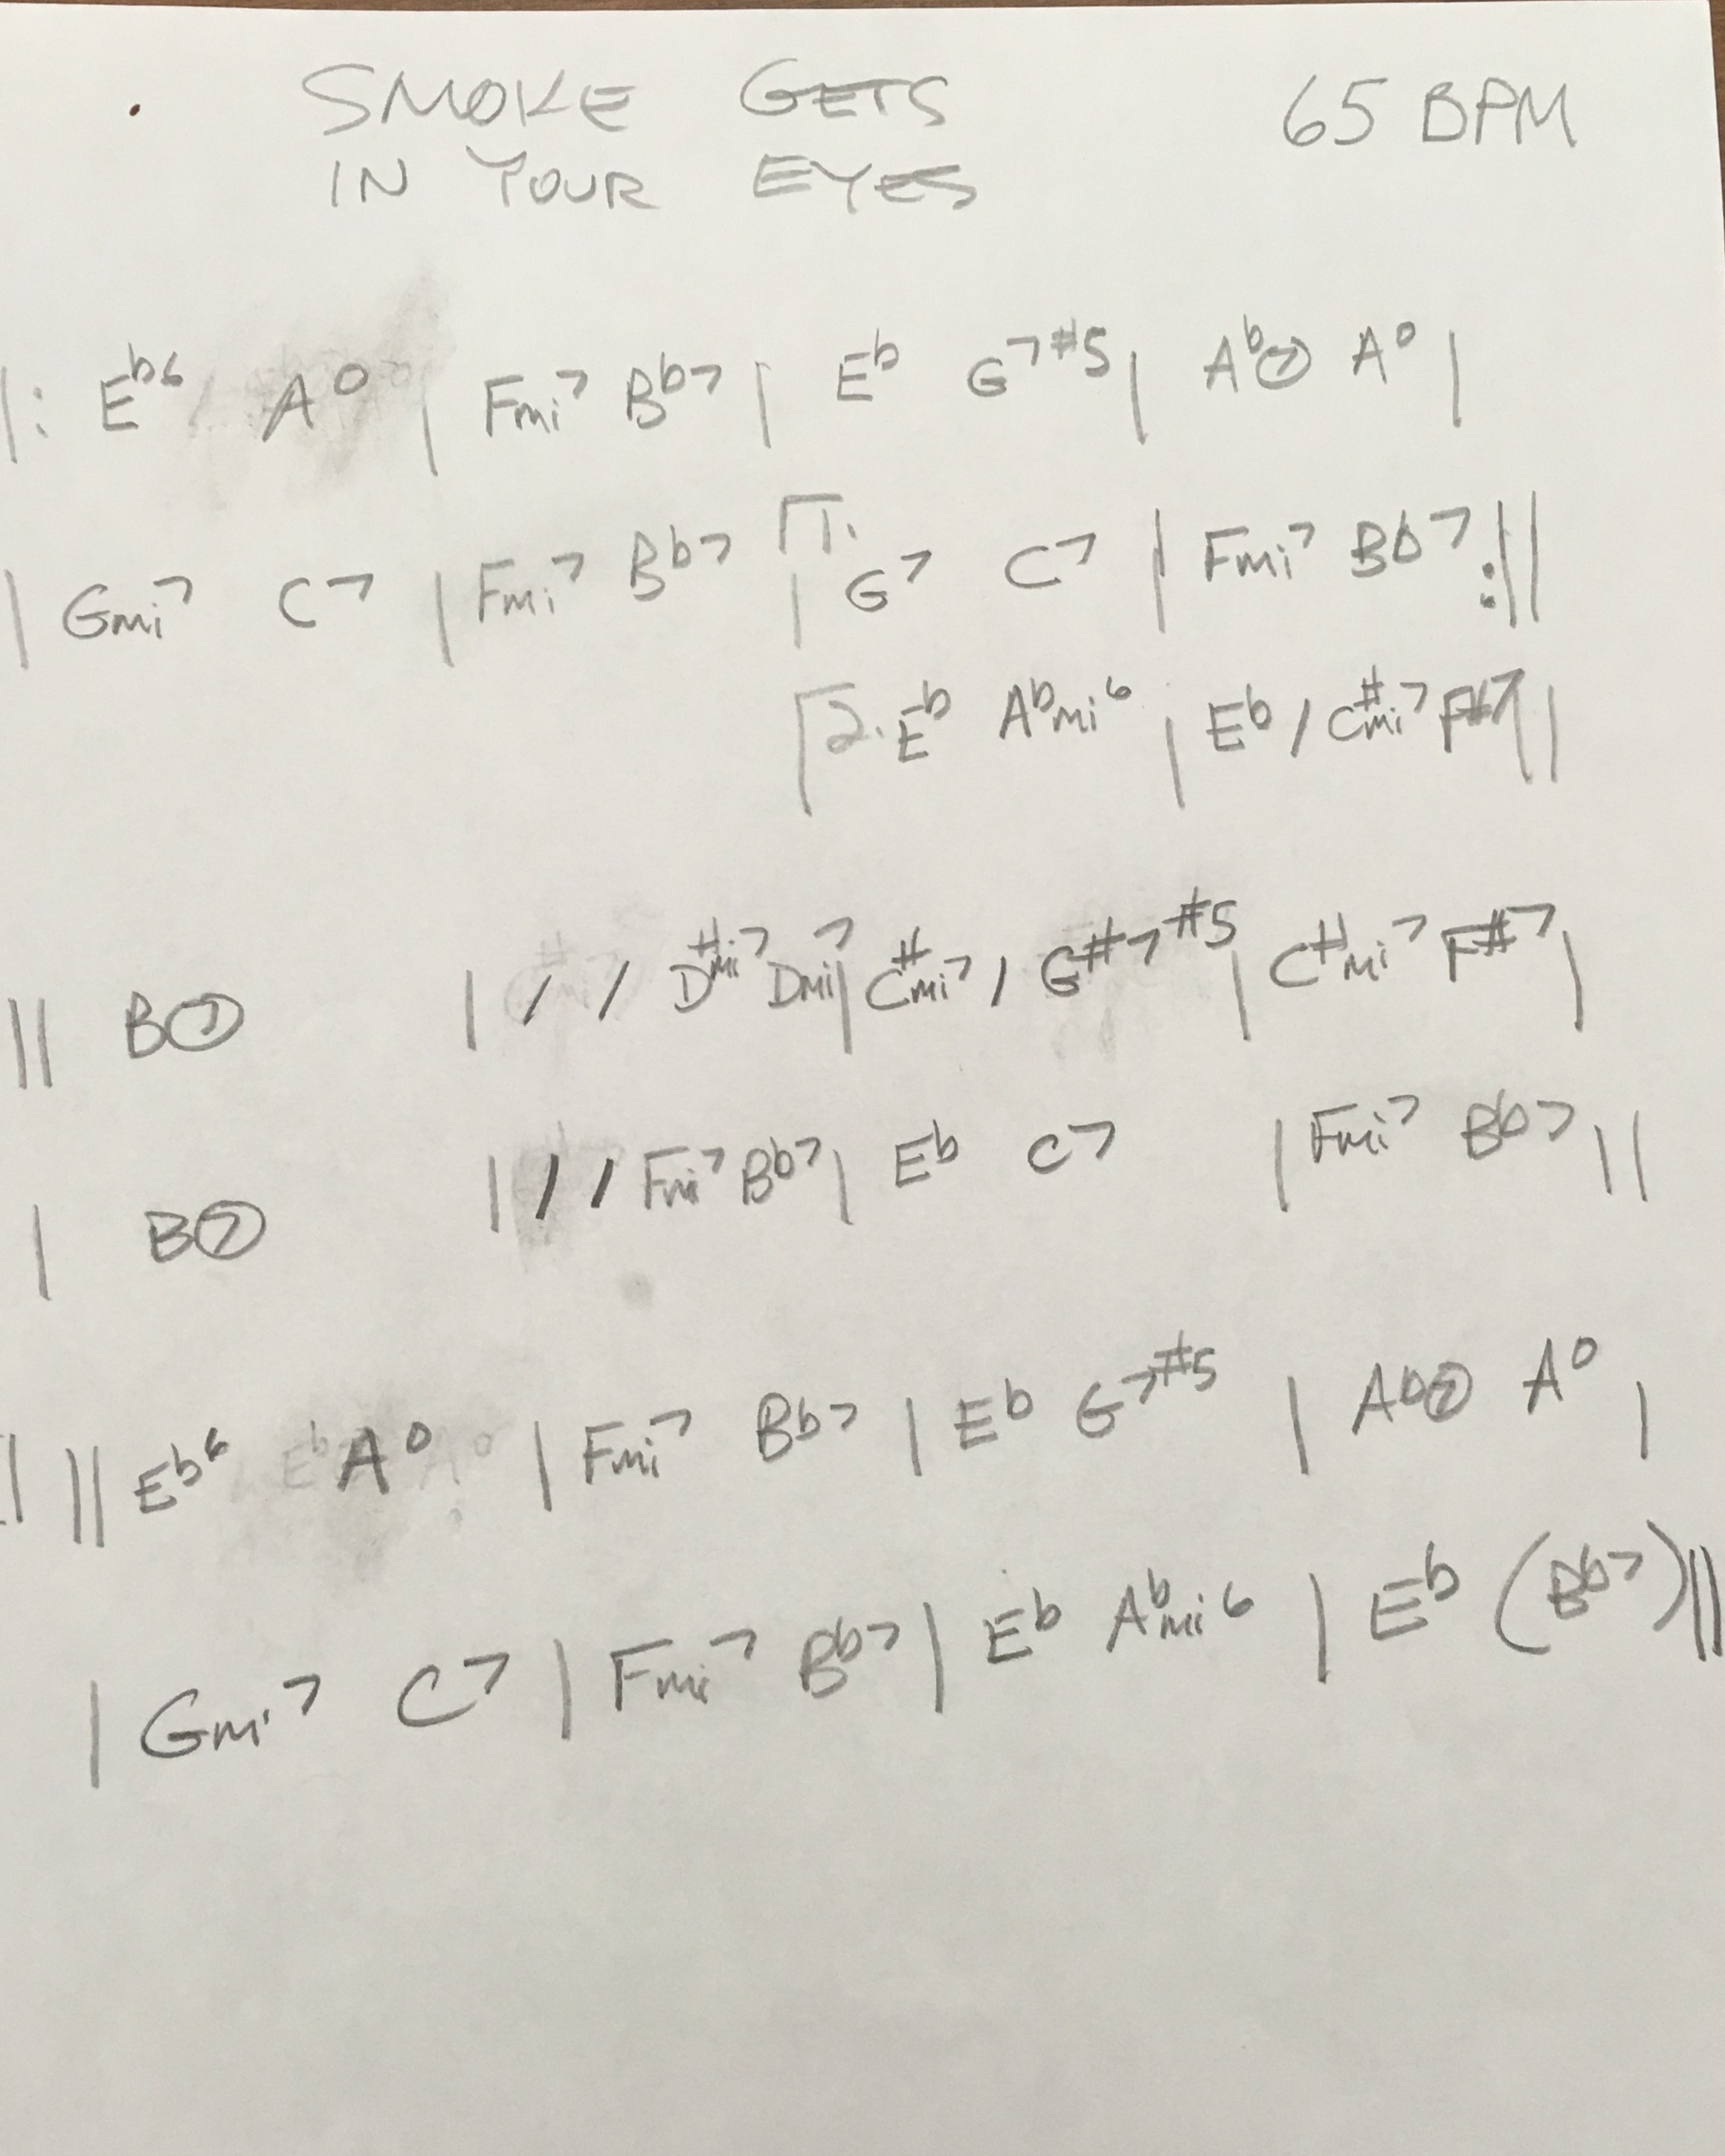 SMOKE GETS 65 BPM
IN YOUR EYES
|: E♭6 A° | Fmi7 B♭7 | E♭ G7#5 | A♭⑦ A° |
| Gmi7 C7 | Fmi7 B♭7 | 1. G7 C7 | Fmi7 B♭7 :||
2. E♭ A♭mi6 | E♭ / C#mi7 F#7 ||
|| B⑦ | / / D#mi7 Dmi7 | C#mi7 / G#7#5 | C#mi7 F#7 |
| B⑦ | / / Fmi7 B♭7 | E♭ C7 | Fmi7 B♭7 ||
|| E♭6 A° | Fmi7 B♭7 | E♭ G7#5 | A♭⑦ A° |
| Gmi7 C7 | Fmi7 B♭7 | E♭ A♭mi6 | E♭ (B♭7) ||